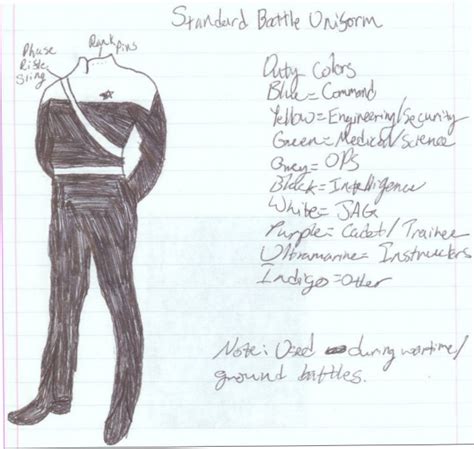 Standard Battle Uniform
Phase
Rifle
Sling
Rank Pins
Duty Colors
Blue = Command
Yellow = Engineering/Security
Green = Medical/Science
Grey = OPS
Black = Intelligence
White = JAG
Purple = Cadet/Trainee
Ultramarine = Instructers
Indigo = Other
Note: Used during wartime/
ground battles.